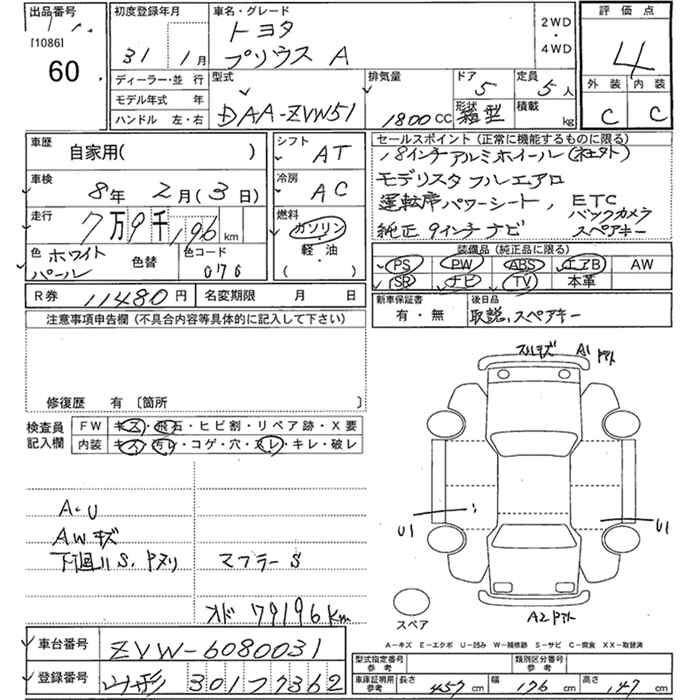 出品番号
[1086]
60
初度登録年月
31年1月
車名・グレード
トヨタ
プリウス A
2WD
・
4WD
評価点
4
外装 内装
C C
ディーラー・並行
モデル年式 年
ハンドル 左・右
型式
DAA-ZVW51
排気量
1800CC
ドア
5
形状
箱型
定員
5人
積載
kg
車歴
自家用( )
車検
8年2月(3日)
走行
7万9千196km
色 ホワイトパール
色替
色コード
070
シフト
AT
冷房
AC
燃料
ガソリン
・
軽・油
( )
セールスポイント(正常に機能するものに限る)
18インチアルミホイール(社外)
モデリスタフルエアロ
運転席パワーシート, ETC
バックカメラ
純正9インチナビ スペアキー
装備品(純正品に限る)
PS PW ABS エアB AW
SR ナビ TV 本革
R券 11480円 名変期限 月 日
新車保証書
有・無
後日品
取説,スペアキー
注意事項申告欄(不具合内容等具体的に記入して下さい)
修復歴 有〔箇所 〕
検査員
記入欄
FW キズ・飛石・ヒビ割・リペア跡・X要
内装 キズ・汚レ・コゲ・穴・スレ・キレ・破レ
A・U
AWキズ
下廻りS、
マフラーS
79196km
A1
U1
U1
A2
スペア
A-キズ E-エクボ U-凹み W-補修跡 S-サビ C-腐食 XX-交換済
車台番号 ZVW-6080031
登録番号 山形 301 7362
型式指定番号
参考
類別区分番号
参考
車庫証明用
参考
長さ 457cm 幅 176cm 高さ 147cm